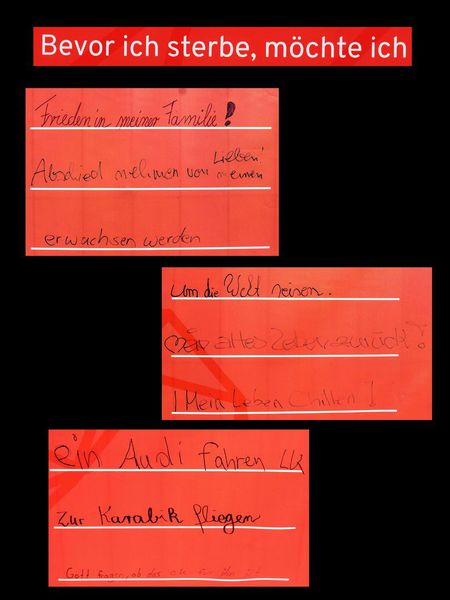 Bevor ich sterbe, möchte ich
Frieden in meiner Familie!
Abschied nehmen von meinen Lieben!
erwachsen werden
um die Welt reisen.
Mein altes Leben zurück!
! Mein Leben Chillen !
ein Audi fahren
Zur Karabik fliegen
Gott fragen, ob das ok für ihn ist